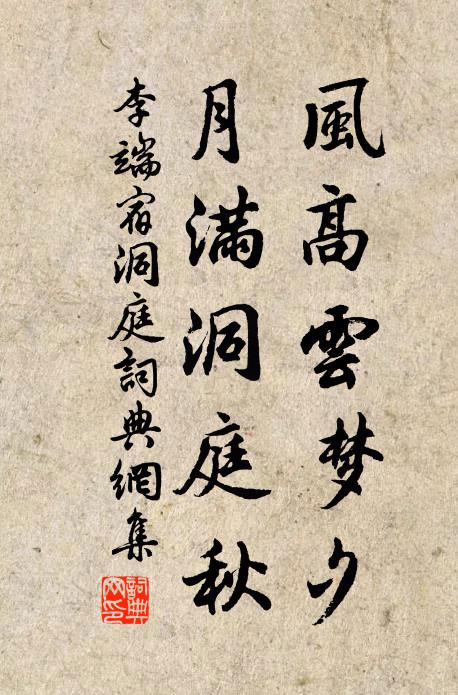 風高雲梦夕
月满洞庭秋
李端宿洞庭詞典網集
詞典網印